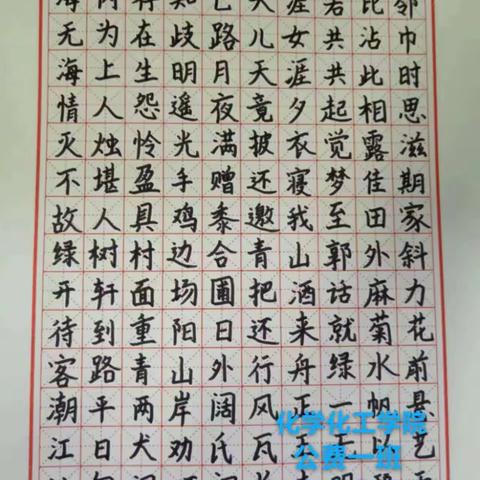 海内存知己天涯若比邻
无为在歧路儿女共沾巾
海上生明月天涯共此时
情人怨遥夜竟夕起相思
灭烛怜光满披衣觉露滋
不堪盈手赠还寝梦佳期
故人具鸡黍邀我至田家
绿树村边合青山郭外斜
开轩面场圃把酒话麻力
待到重阳日还来就菊花
客路青山外行舟绿水前
潮平两岸阔风正一帆县
化学化工学院
江日犬劝氏瓦以艺
公费一班